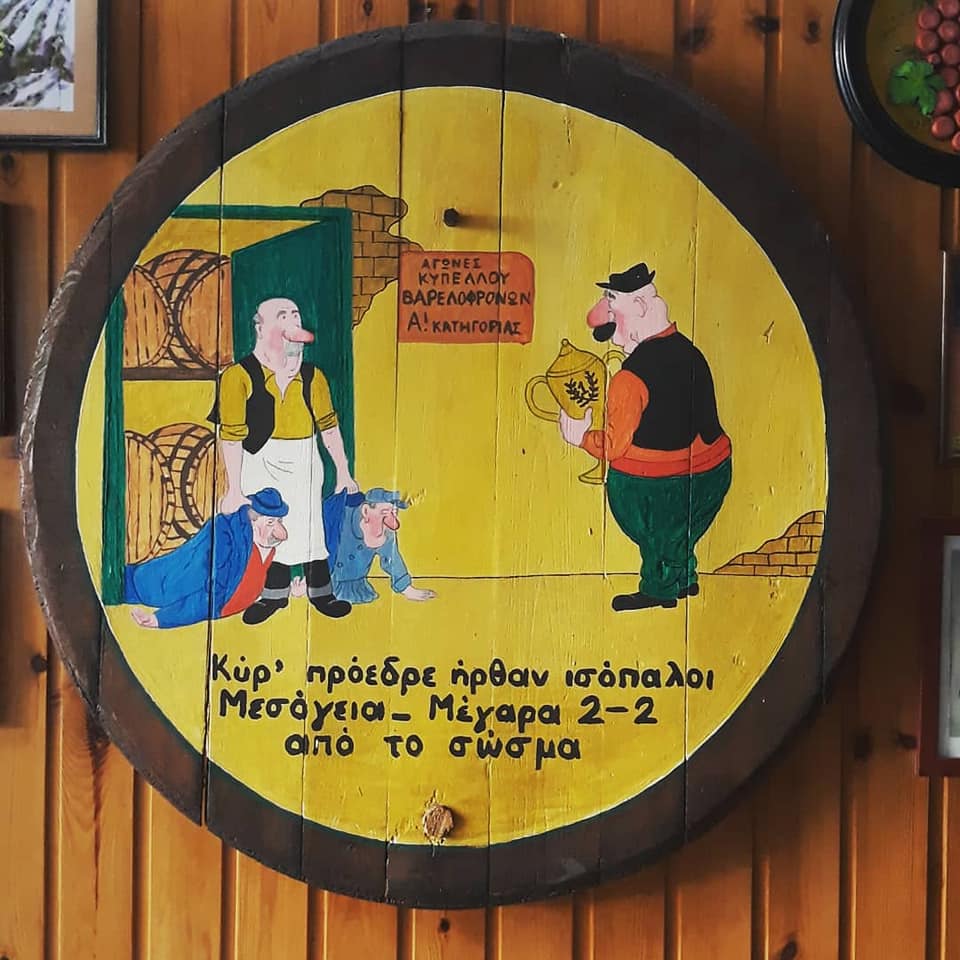 ΑΓΩΝΕΣ
ΚΥΠΕΛΛΟΥ
ΒΑΡΕΛΟΦΡΟΝΩΝ
Α! ΚΑΤΗΓΟΡΙΑΣ
1
Κύρ' πρόεδρε ήρθαν ισόπαλοι
Μεσόγεια_ Μέγαρα 2-2
από το σώσμα